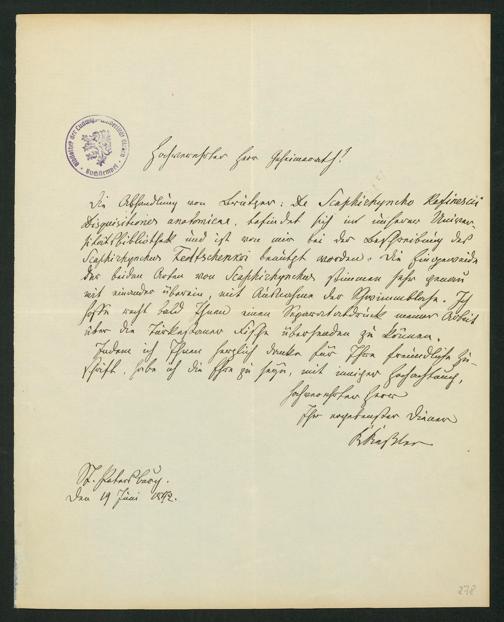 Hochverehrter Herr Geheimrath!
Die Abhandlung von Brutzer: De Scaphirhyncho Rafinescii
disquisitiones anatomicae, befindet sich in unserer Univer-
sitätsbibliothek und ist von mir bei der Beschreibung des
Scaphirhynchus Fedtschenkoi benutzt worden. Die Eingeweide
der beiden Arten von Scaphirhynchus stimmen sehr genau
mit einander überein, mit Ausnahme der Schwimmblase. Ich
hoffe recht bald Ihnen einen Separatabdruck meiner Arbeit
über die Turkestaner Fische übersenden zu können.
Indem ich Ihnen herzlich danke für Ihre freundliche Zu-
schrift, habe ich die Ehre zu seyn, mit inniger Hochachtung,
Hochverehrter Herr
Ihr ergebenster Diener
K Keßler
St. Petersburg.
Den 19 Juni 1872.
278